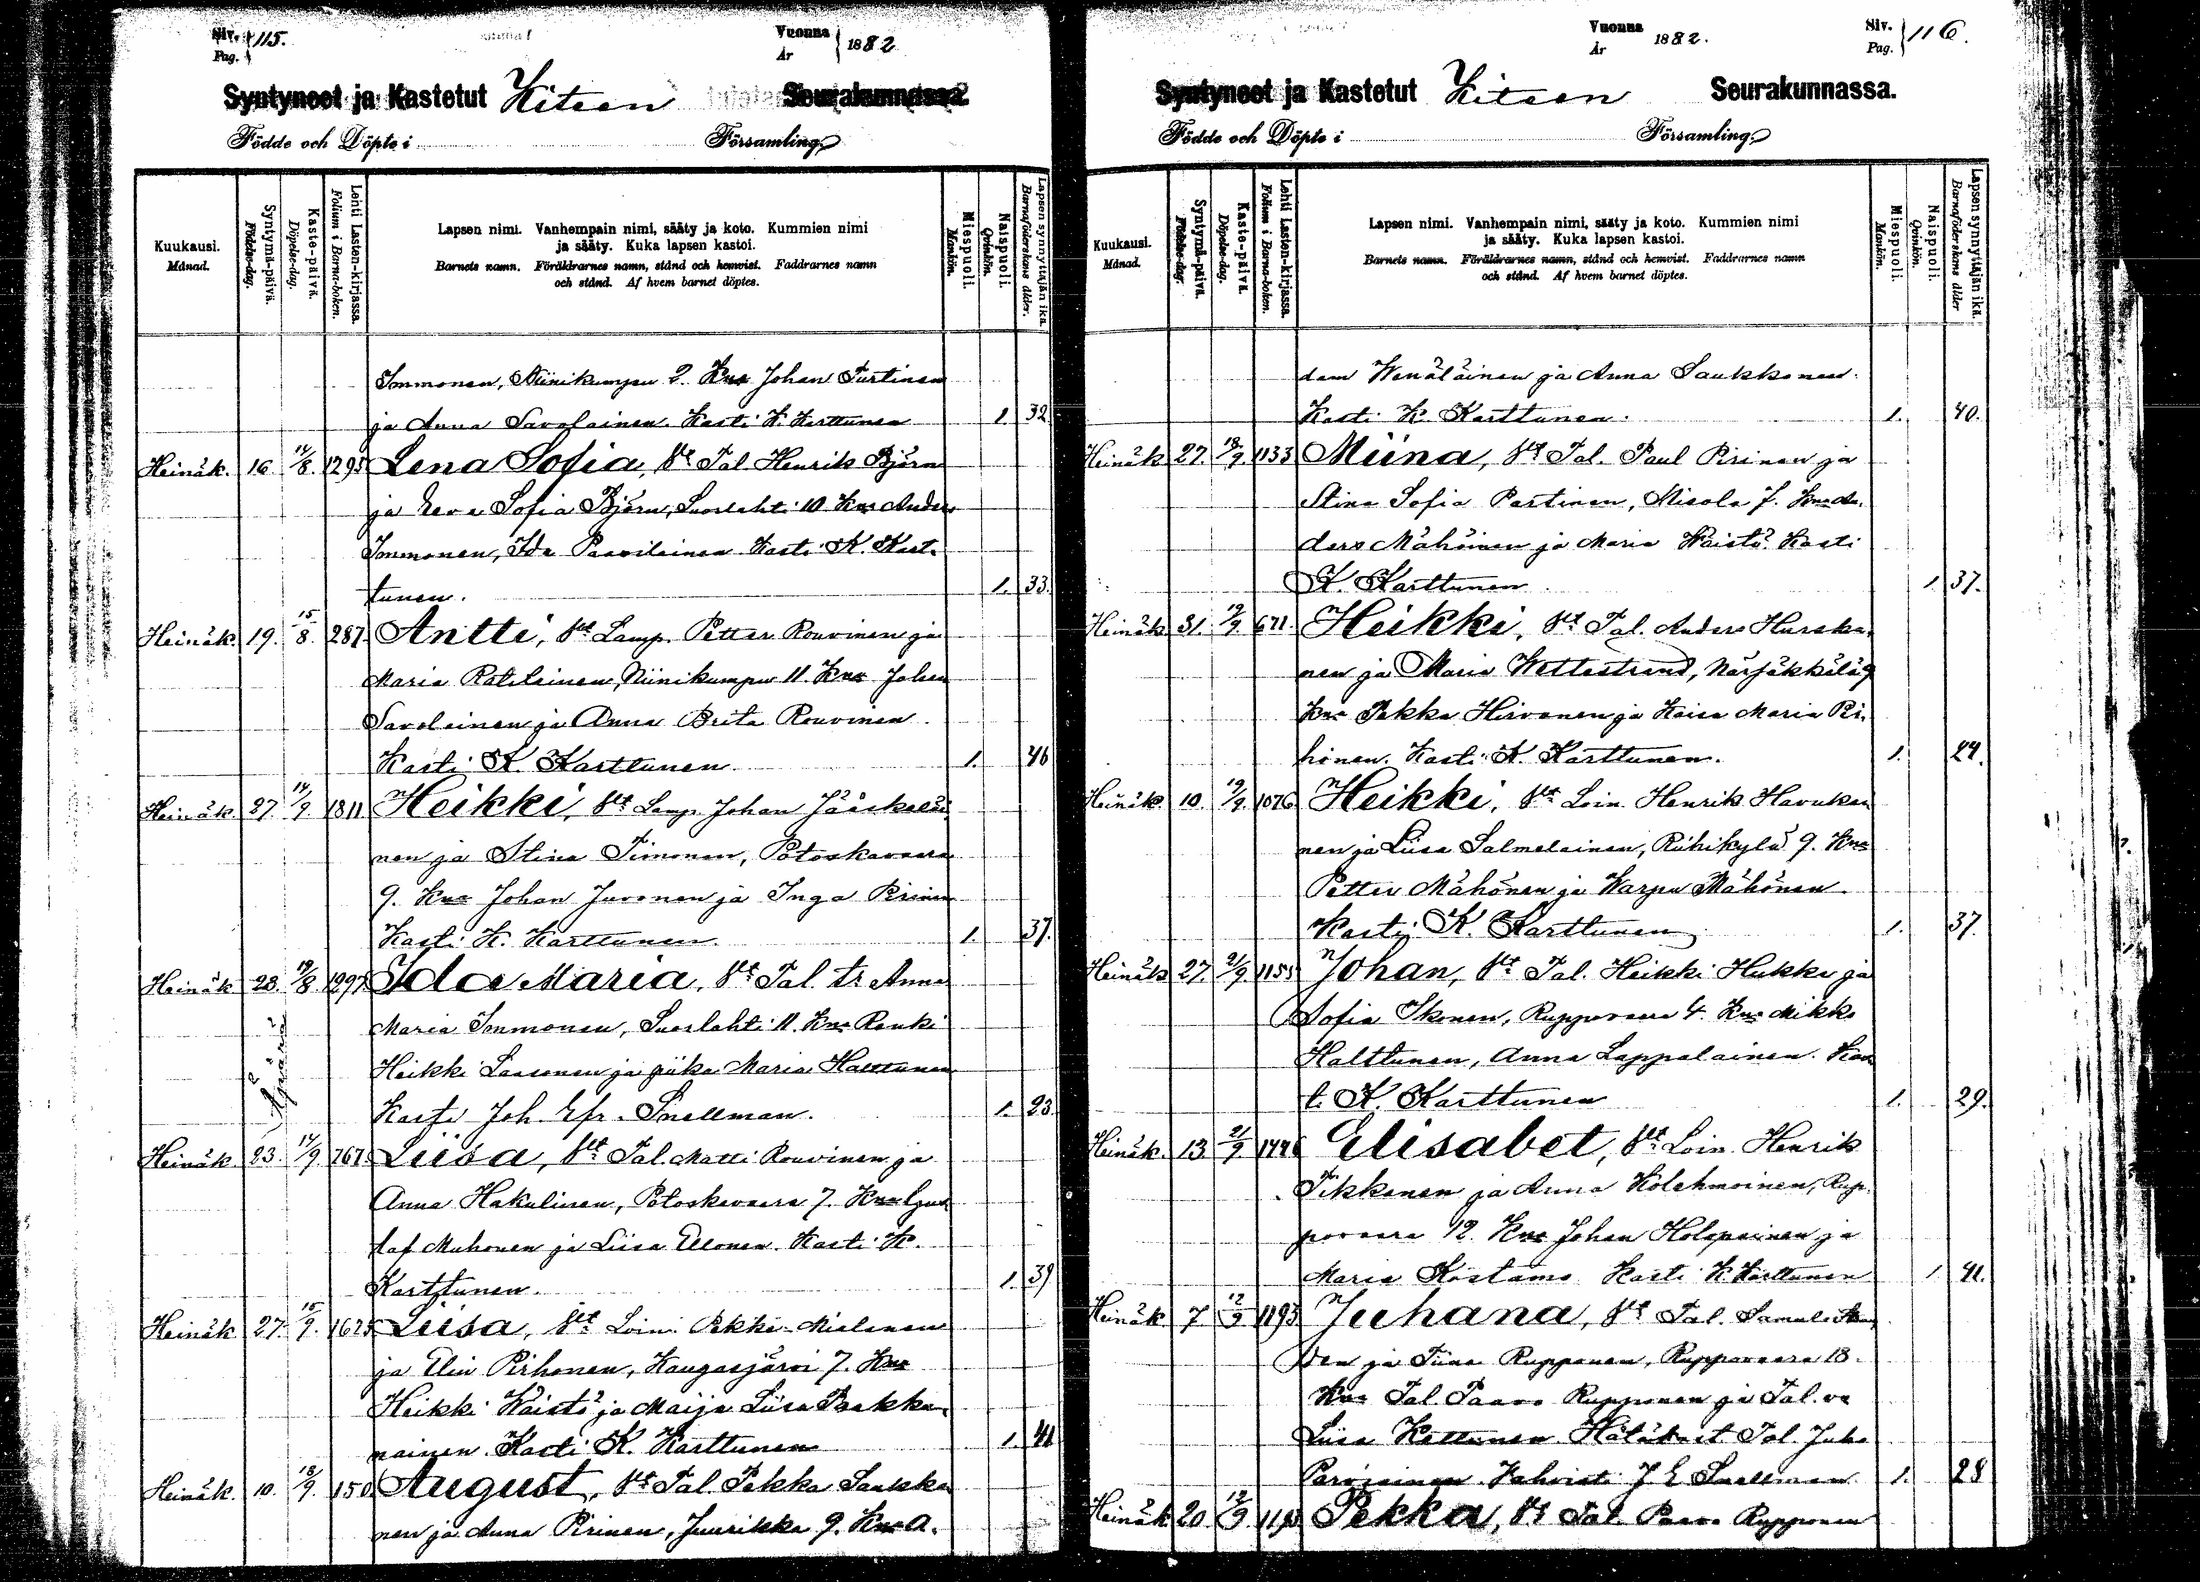 Siv. Pag. 115.
Vuonna År 1882
Syntyneet ja Kastetut Kiteen Seurakunnassa.
Födde och Döpte i Församling
Kuukausi. Månad.
Syntymä-päivä. Födelse-dag.
Kaste-päivä. Döpelse-dag.
Lehti Lasten-kirjassa. Folium i Barna-boken.
Lapsen nimi. Vanhempain nimi, sääty ja koto. Kummien nimi
ja sääty. Kuka lapsen kastoi.
Barnets namn. Föräldrarnes namn, stånd och hemvist. Faddrarnes namn
och stånd. Af hvem barnet döptes.
Miespuoli. Mankön.
Naispuoli. Qvinkön.
Lapsen synnyttäjän ikä. Barnaföderskans ålder.
Immonen, Niinikumpu 2. Kus Johan Turtinen
ja Anna Savolainen. Kasti K. Karttunen 1. 32
Heinäk. 16 14/8. 1295 Lena Sofia, Vt Tal Henrik Björn
ja Eeva Sofia Björn, Suorlahti 10 Kus Anders
Immonen, Ida Paavilainen Kasti K. Kart-
tunen. 1. 33.
Heinäk. 19. 15/8. 287 Antti, Vt Lamp. Petter Rouvinen ja
Maria Ratilainen, Niinikumpu 11. Kus Johan
Savolainen ja Anna Brita Rouvinen.
Kasti K. Karttunen 1. 46
Heinäk. 27. 14/9. 1811 Heikki, Vt Lamp. Johan Jääskeläi
nen ja Stina Timonen, Potoskavaara
9. Kus Johan Juvonen ja Inga Pirinen
Kasti K. Karttunen. 1. 37.
Heinäk 23. 19/8. 1297 Ida Maria, Vt Tal. tr Anna
Maria Immonen, Suorlahti 11. Kus Renki
Heikki Laasonen ja piika Maria Halttunen
Kasti Joh. Efr. Snellman. 1. 23.
Heinäk. 23. 14/9 767 Liisa, Vt Tal. Matti Rouvinen ja
Anna Hakulinen, Potoskavaara 7. Kus Gus
taf Muhonen ja Liisa Ellonen. Kasti K.
Karttunen. 1. 39
Heinäk 27. 15/9. 1625 Liisa, Vt Loin. Pekka Mielonen
ja Elin Pirhonen, Kangasjärvi 7. Kus
Heikki Waisto ja Maija Liisa Paakku
nainen. Kasti K. Karttunen 1. 41
Heinäk. 10. 18/9. 150 August, Vt Tal Pekka Saukko
nen ja Anna Pirinen, Juurikka 9. Kus A.
Vuonna År 1882.
Siv. Pag. 116.
Syntyneet ja Kastetut Kiteen Seurakunnassa.
Födde och Döpte i Församling
Kuukausi. Månad.
Syntymä-päivä. Födelse-dag.
Kaste-päivä. Döpelse-dag.
Lehti Lasten-kirjassa. Folium i Barna-boken.
Lapsen nimi. Vanhempain nimi, sääty ja koto. Kummien nimi
ja sääty. Kuka lapsen kastoi.
Barnets namn. Föräldrarnes namn, stånd och hemvist. Faddrarnes namn
och stånd. Af hvem barnet döptes.
Miespuoli. Mankön.
Naispuoli. Qvinkön.
Lapsen synnyttäjän ikä. Barnaföderskans ålder
dam Wenäläinen ja Anna Saukkonen.
Kasti K. Karttunen. 1. 40.
Heinäk 27. 18/9. 1133 Miina, Vt Tal. Paul Pirinen ja
Stina Sofia Partinen, Misola 7. Kus An
ders Mähöinen ja Maria Waisto. Kasti
K. Karttunen 1. 37.
Heinäk 31. 19/9. 671. Heikki, Vt Tal. Anders Hurska
nen ja Maria Wettestrand, Närsäkkälä 9
Kus Pekka Hirvonen ja Kaisa Maria Pi
honen. Kasti K. Karttunen. 1. 24.
Heinäk 10. 19/9. 1076 Heikki, Vt Loin. Henrik Havukai
nen ja Liisa Salmelainen, Riihikylä 9. Kus
Petter Mähönen ja Karpu Mähönen.
Kasti K. Karttunen 1. 37.
Heinäk 27. 21/9 1155 Johan, Vt Tal. Heikki Hukka ja
Sofia Ikonen, Ruppovaara 4. Kus Mikko
Halttunen, Anna Lappalainen. Kas
ti K. Karttunen 1. 29.
Heinäk. 13 21/9 Elisabet, Vt Loin. Henrik
Tikkanen ja Anna Kolehmoinen, Rup
povaara 12. Kus Johan Holopainen ja
Maria Kostamo Kasti K. Karttunen 1 41.
Heinäk 7 12/9 1193 Juhana, Vt Tal. Samuli
nen ja Tiina Rupponen, Ruppovaara 18.
Kus Tal. Paavo Rupponen ja Tal. va
Liisa Kettunen Hätäkast Tal. Juho
Parviainen Vahvisti J. E. Snellman 1. 28
Heinäk 20. 12/9 Pekka, Vt Tal. Paavo Rupponen